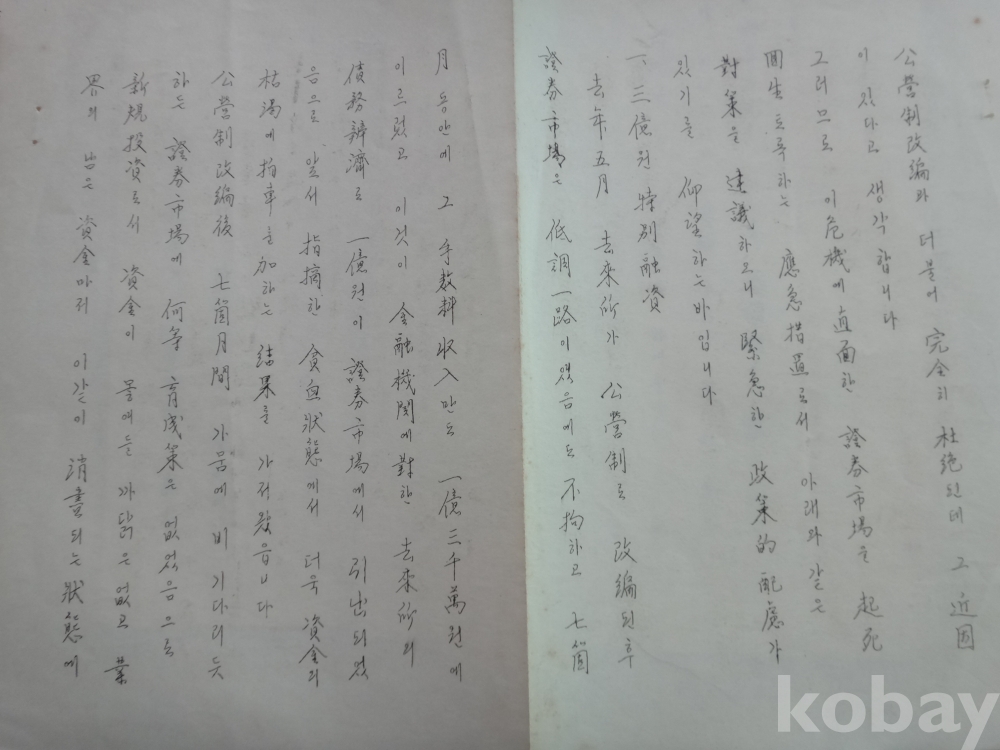 公營制改編과 더불어 完全히 杜絶된데 그 近因
이 있다고 생각합니다
그러므로 이 危機에 直面한 證券市場을 起死
回生토록하는 應急措置로서 아래와 같은
對策을 建議하오니 緊急한 政策的 配慮가
있기를 仰望하는바입니다
一、三億원 特別融資
去年五月 去來所가 公營制로 改編된후
證券市場은 低調一路이였음에도 不拘하고 七箇
月 동안에 그 手數料收入만도 一億三千萬원에
이르렀고 이것이 金融機関에 對한 去來所의
債務辨濟로 一億원이 證券市場에서 引出되였
음으로 앞서 指摘한 貧血狀態에서 더욱 資金의
枯渴에 拍車를 加하는 結果를 가저왔읍니다
公營制改編後 七箇月間 가뭄에 비 기다리듯
하는 證券市場에 何等 育成策은 없었음으로
新規投資로서 資金이 몰여들 까닭은 없고 業
界의 남은 資金마저 이같이 消盡되는 狀態에
kobay